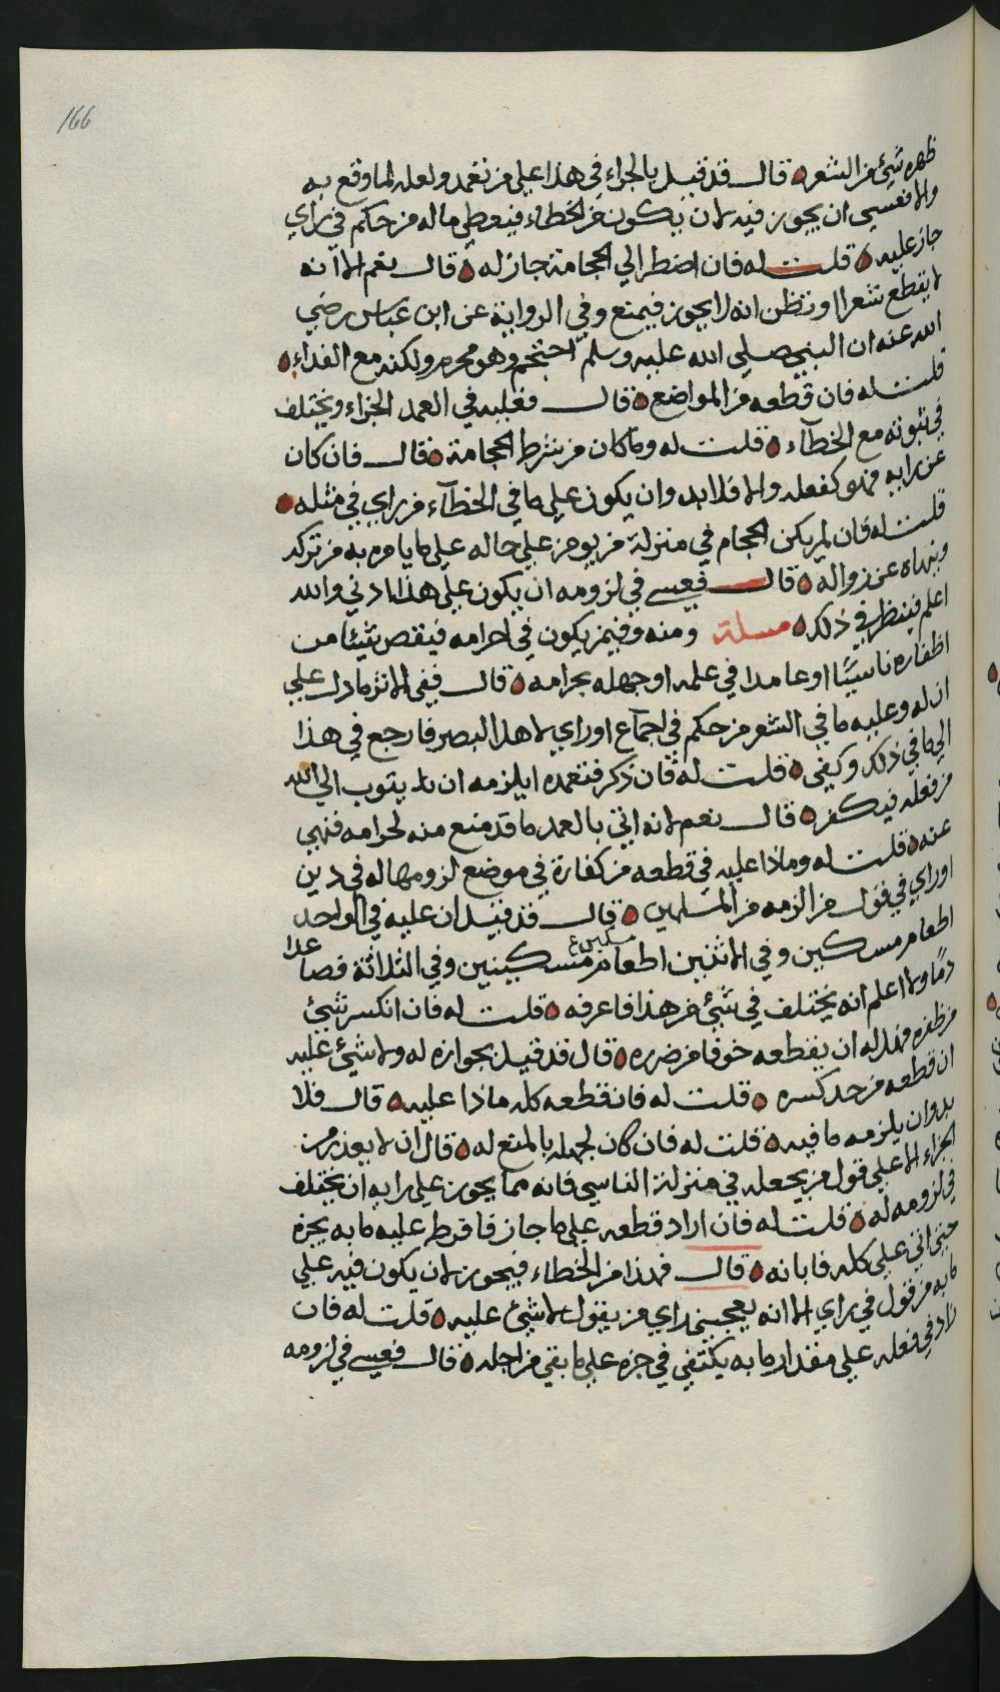 166
ظهره شيء من الشعر قال قد قيل بالجزاء في هذا على من تعمد ولعله لما وقع به
والا فعسى ان يجوز فيه لان يكون من الخطاء فيعطى ماله من حكم في راي
جاز عليه قلت له فان اضطر الي الحجامة جاز له قال نعم الا انه
لا يقطع شعرا او تظن انه لا يجوز فيمنع وفي الرواية عن ابن عباس رضي
الله عنه ان النبي صلى الله عليه وسلم احتجم وهو محرم ولكنه مع الفداء
قلت له فان قطعه من المواضع قال فعليه في العمد الجزاء ويختلف
في ثبوته مع الخطآء قلت له وما كان من شرط الحجامة قال فان كان
عن رايه فهو كفعله والا فلا بد وان يكون على ما في الخطآء من راي في مثله
قلت له فان لم يكن الحجام في منزلة من يومن على حاله على ما يامره به من تركه
وينهاه عن زواله قال فعسى في لزومه ان يكون على هذا ادنى والله
اعلم فينظر في ذلك مسلة ومنه وفيمن يكون في احرامه فيقص شيئا من
اظفاره ناسيًا او عامدا في علمه او جهله بحرامه قال ففي الاثر ما دل على
ان له وعليه ما في الشعر من حكم في اجماع او راي لاهل البصر فارجع في هذا
الي ما في ذلك وكفى قلت له فان ذكر فتعمده ايلزمه ان لا يتوب الى الله
من فعله فيكفر قال نعم لانه اتى بالعمد ما قد منع منه لحرامه فنهي
عنه قلت له وماذا عليه في قطعه من كفارة في موضع لزومها له في دين
او راي في قول من الزمه من المسلمين قال قد قيل ان عليه في الواحد
اطعام مسكين وفي الاثنين اطعام مسكينين وفي الثلاثة فصاعدا
دمًا ولا اعلم انه يختلف في شيء من هذا فاعرفه قلت له فان انكسر شيئ
من ظفره فهل له ان يقطعه خوفا من ضرره قال قد قيل بجوازه له ولا شيئ عليه
ان قطعه من حد كسره قلت له فان قطعه كله ماذا عليه قال فلا
بد وان يلزمه ما فيه قلت له فان كان لجهله بالمنع له قال ان لا يعذر من
الجزاء الا على قول من يجعله في منزلة الناسي فانه مما يجوز على رايه ان يختلف
في لزومه له قلت له فان اراد قطعه على ما جاز فافرط عليه ما به يجزه
حتى اتى على كله فابانه قال فهذا من الخطاء فيجوز لان يكون فيه على
ما به من قول في راي الا انه يعجبني راي من يقول لا شيئ عليه قلت له فان
زاد في فعله على مقدار ما به يكتفي في جزه على ما بقي من اجله قال فعسى في لزومه